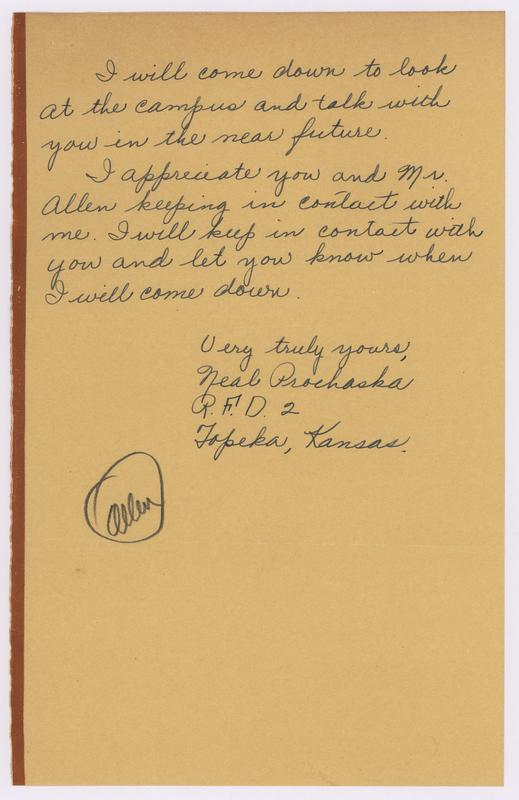 I will come down to look
at the campus and talk with
you in the near future.
I appreciate you and Mr.
Allen keeping in contact with
me. I will keep in contact with
you and let you know when
I will come down.
Very truly yours,
Neal Prochaska
R.F.D. 2
Topeka, Kansas.
Allen